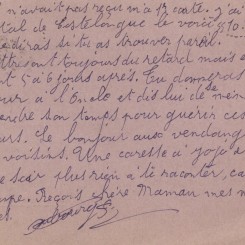 n'avait pas reçu ma 1? carte. J'ai
tal de Castelongue le voici
dirais si tu as trouver pareil.
ttres ont toujours du retard mais e
nt 5 à 6 jours après. Tu donneras
ur à l'Oncle et dis lui de même
endre son temps pour guérir ces
urs. Le bonjour aux vendang
voisins. Une caresse à Jojo d
e soir plus rien a te raconter, ca
upe. Reçois chère Maman mes m